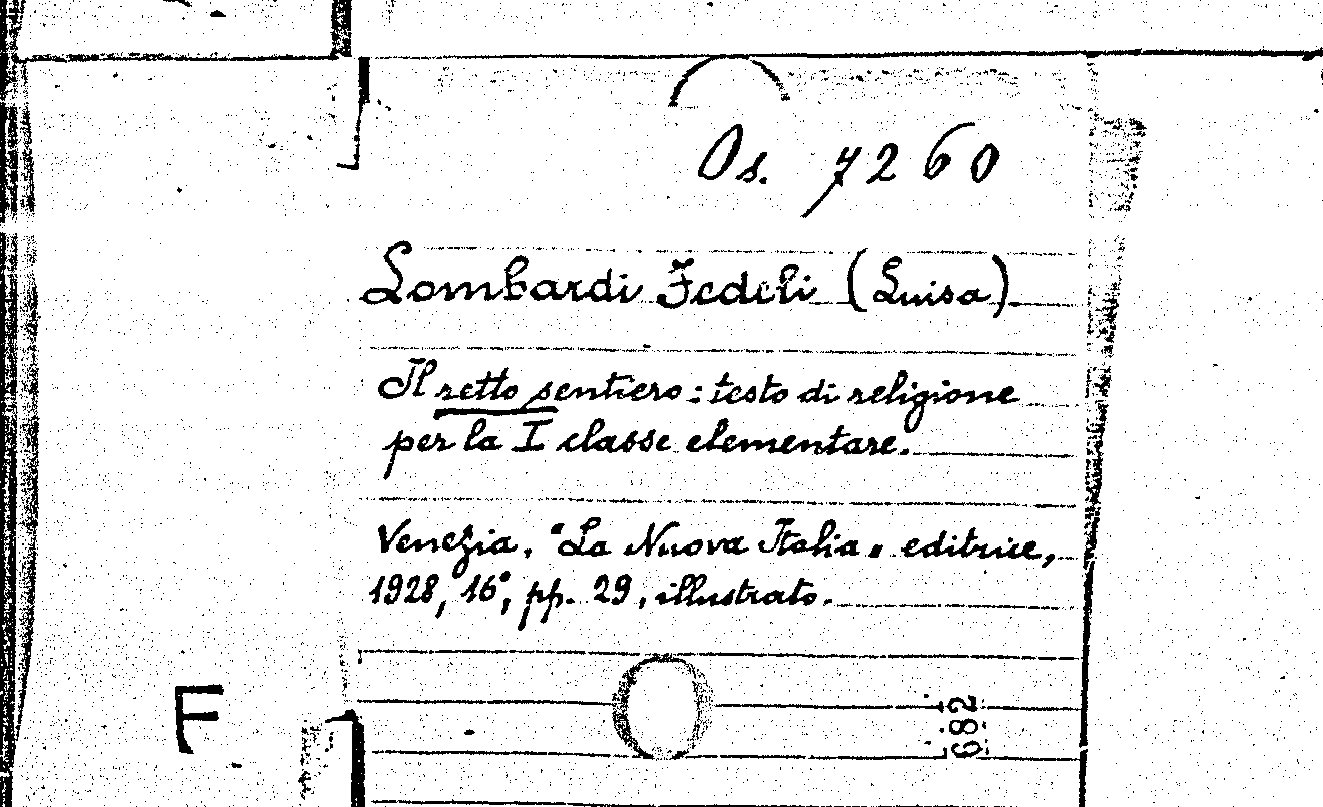 Os. 7260
Lombardi Fedeli (Luisa)
Il retto sentiero: testo di religione
per la I classe elementare.
Venezia, "La Nuova Italia" editrice,
1928, 16°, pp. 29, illustrato.
F
682